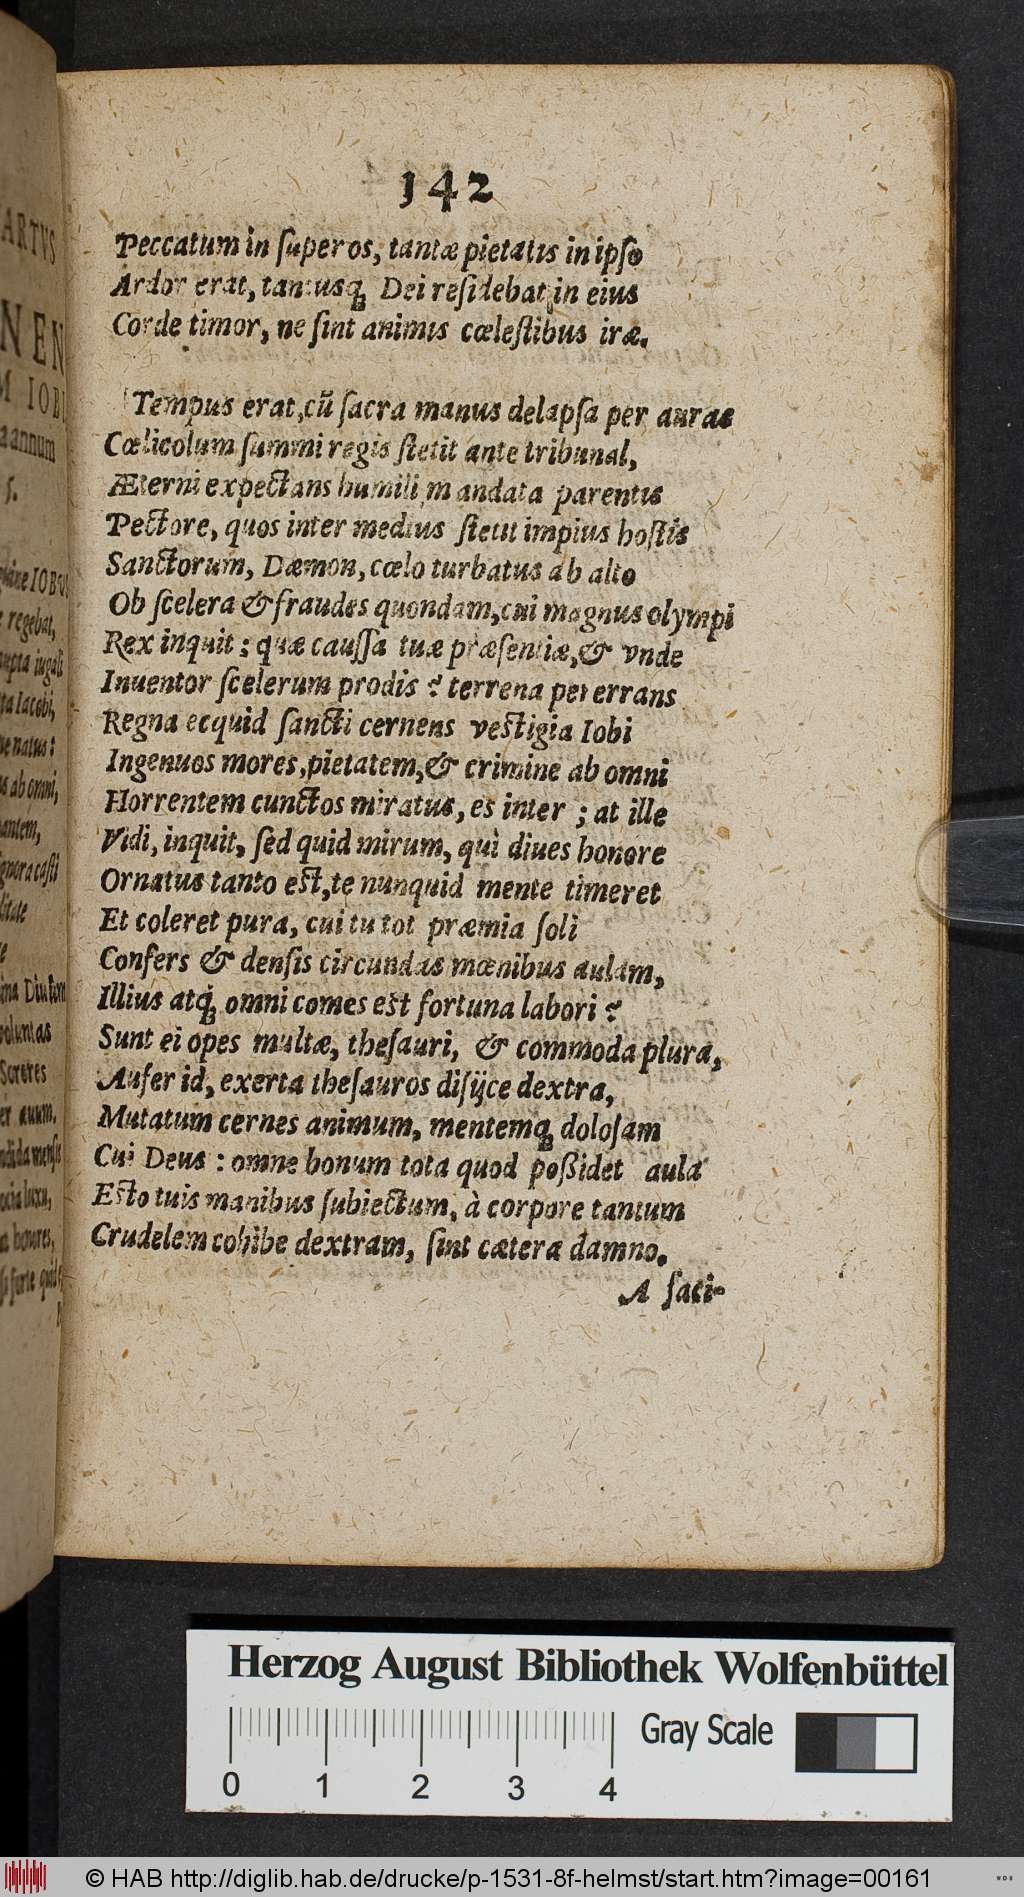 ARTVS
NEN
M IOB
a annum
s.
142
Peccatum in ſuperos, tantæ pietatis in ipſo
Ardor erat, tantusq́ꝫ Dei reſidebat in eius
Corde timor, ne ſint animis cœleſtibus iræ.
Tempus erat, cũ ſacra manus delapſa per auras
Cœlicolum ſummi regis ſtetit ante tribunal,
Æterni expectans humili mandata parentis
Pectore, quos inter medius ſtetit impius hoſtis
Sanctorum, Dæmon, cœlo turbatus ab alto
Ob ſcelera & fraudes quondam, cui magnus olympi
Rex inquit: quæ cauſſa tuæ præſentiæ, & vnde
Inuentor ſcelerum prodis? terrena pererrans
Regna ecquid ſancti cernens veſtigia Iobi
Ingenuos mores, pietatem, & crimine ab omni
Horrentem cunctos miratus, es inter; at ille
Vidi, inquit, ſed quid mirum, quì diues honore
Ornatus tanto eſt, te nunquid mente timeret
Et coleret pura, cui tu tot præmia ſoli
Confers & denſis circundas mœnibus aulam,
Illius atq́ꝫ omni comes eſt fortuna labori?
Sunt ei opes multæ, theſauri, & commoda plura,
Aufer id, exerta theſauros diſijce dextra,
Mutatum cernes animum, mentemqꝫ doloſam
Cui Deus: omne bonum tota quod poßidet aula
Eſto tuis manibus ſubiectum, à corpore tantum
Crudelem cohibe dextram, ſint cætera damno.
A ſati-
Herzog August Bibliothek Wolfenbüttel
Gray Scale
0 1 2 3 4
© HAB http://diglib.hab.de/drucke/p-1531-8f-helmst/start.htm?image=00161